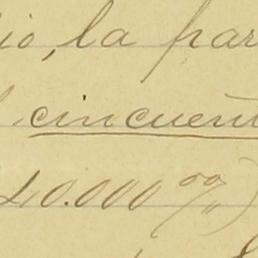 io, la par
cincuent
0.000 00/00)